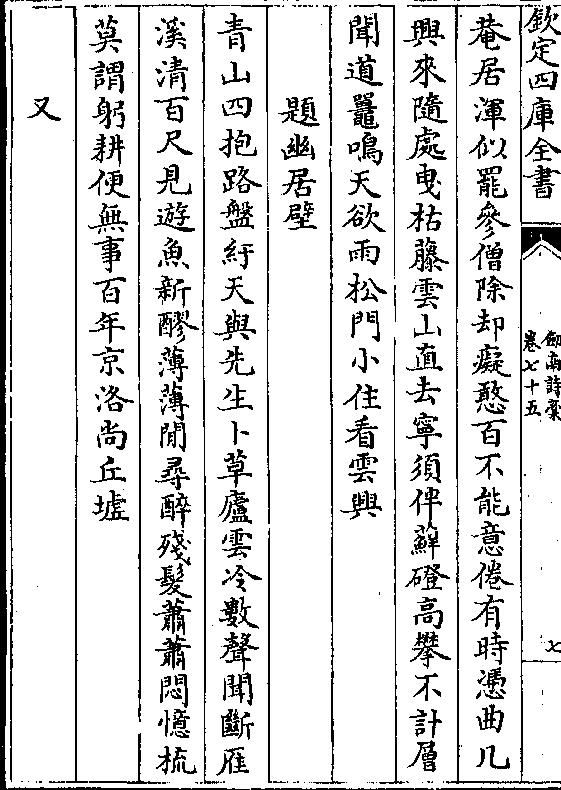 欽定四庫全書
劍南詩藁
卷七十五
七
菴居渾似罷參僧除却癡憨百不能意倦有時憑曲几
興來隨處曵枯藤雲山直去寧須伴蘚磴高攀不計層
聞道鼉鳴天欲雨松門小住看雲興
題幽居壁
青山四抱路盤紆天與先生卜草廬雲冷數聲聞斷雁
溪清百尺見遊魚新醪薄薄閒尋醉殘髮蕭蕭悶憶梳
莫謂躬耕便無事百年京洛尚丘墟
又